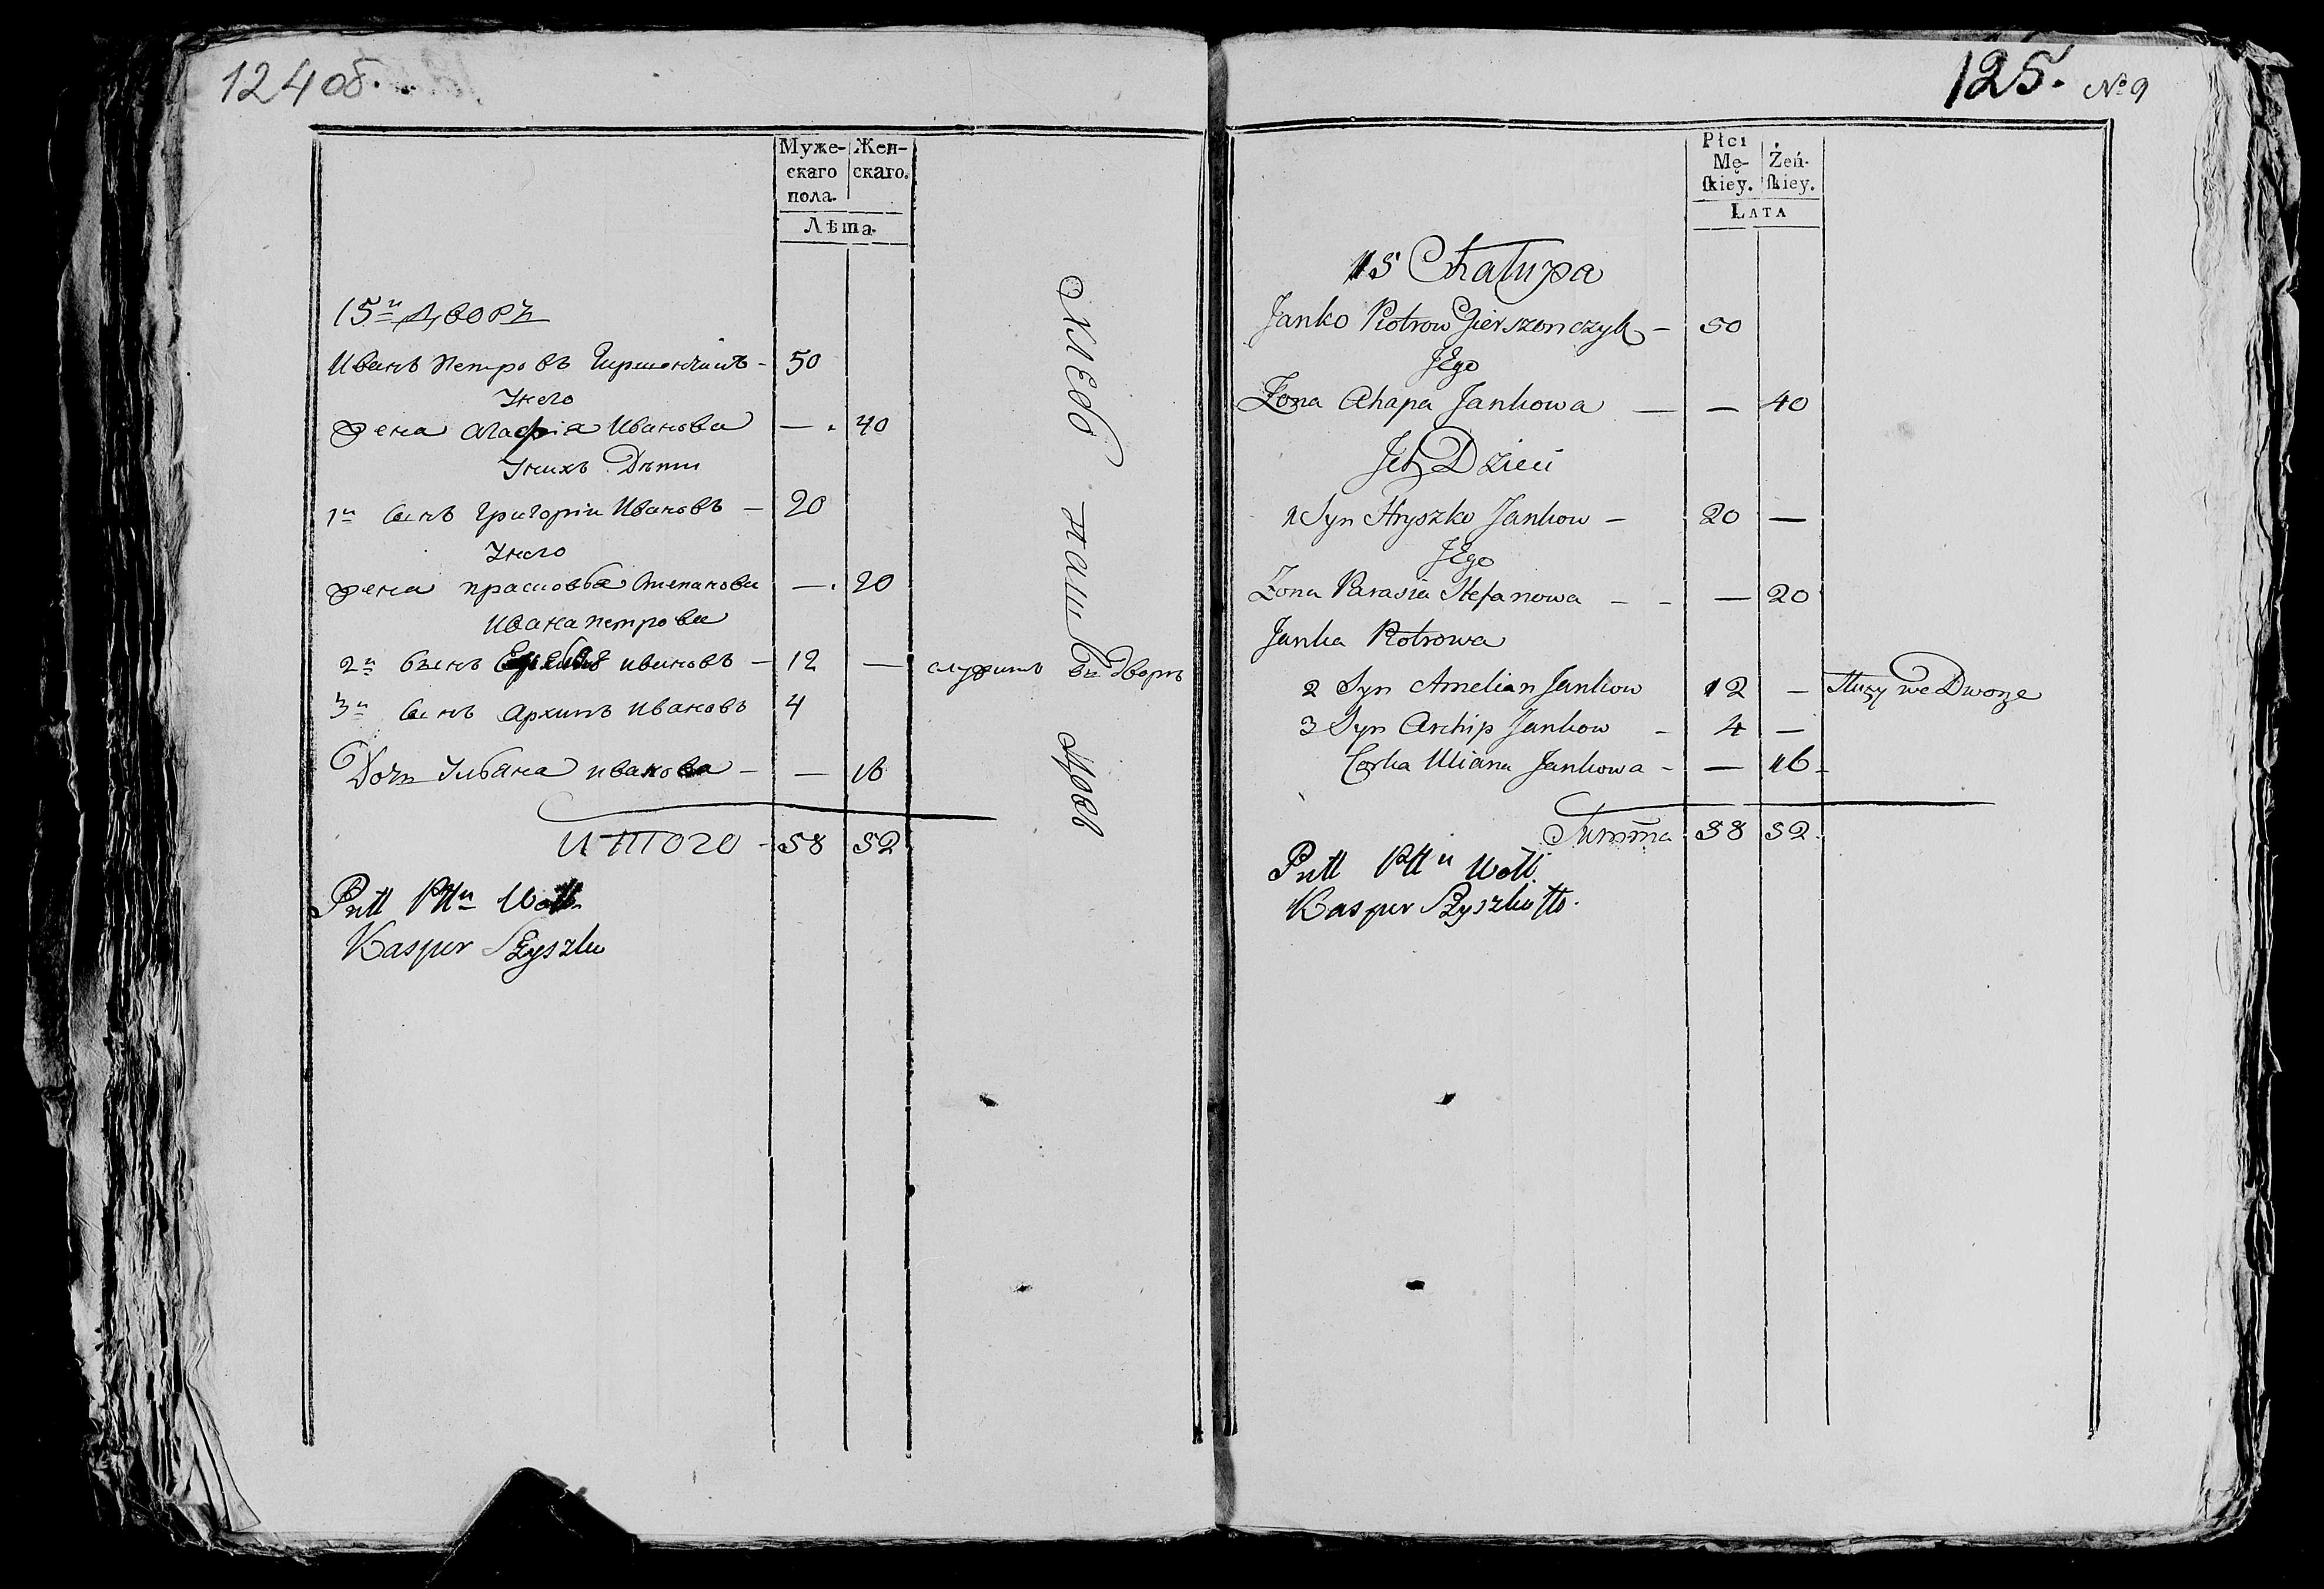 124 об.
Муже-
скаго
пола.
Жен-
скаго.
Лѣта.
15й Дворъ
Иванъ Петровъ Гиршончикъ - 50
Унего
жена Агафія Иванова — 40
Унихъ Дѣти
1й Сынъ Григорій Ивановъ — 20
Унего
жена Прасковья Степанова — 20
Ивана Петрова
2й Сынъ Ивановъ — 12 — служитъ въ Дворѣ
3й Сынъ Архипъ Ивановъ 4
Дочь Ульяна Иванова — — 16
ИТОГО - 58 52
Kasper Szyszko
125. № 9
Płci
Mę-
ſkiey.
Żeń-
ſkiey.
LATA
15 Chałupa
Janko Piotrow Gierszonczyk — 50
JEgo
Zona Ahapa Jankowa — — 40
Ich Dzieci
1 Syn Hryszko Jankow — 20 —
JEgo
Zona Parasia Stefanowa — — — 20
Janka Piotrowa
2 Syn Amelian Jankow 12 — Służy we Dworze
3 Syn Archip Jankow - 4 —
Corka Uliana Jankowa - — 16
Summa 58 52
Kasper Szyszko